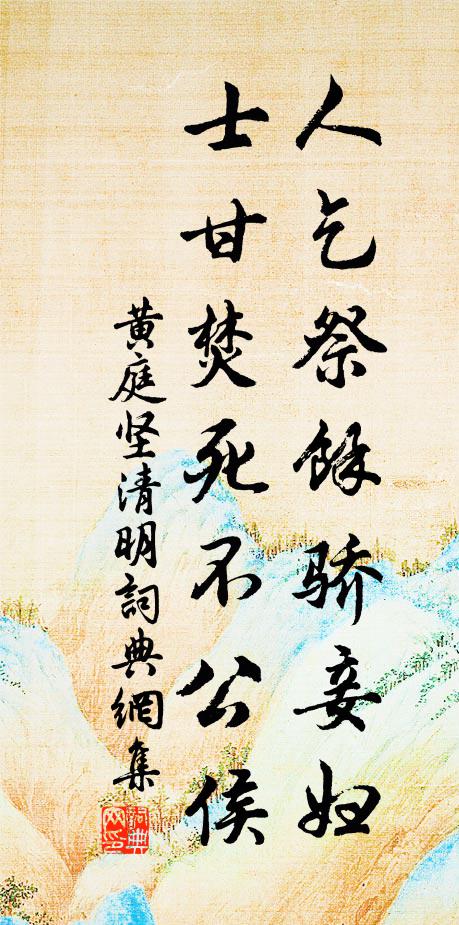 人乞祭餘骄妾妇
士甘焚死不公侯
黄庭坚清明詞典網集
詞典
网印